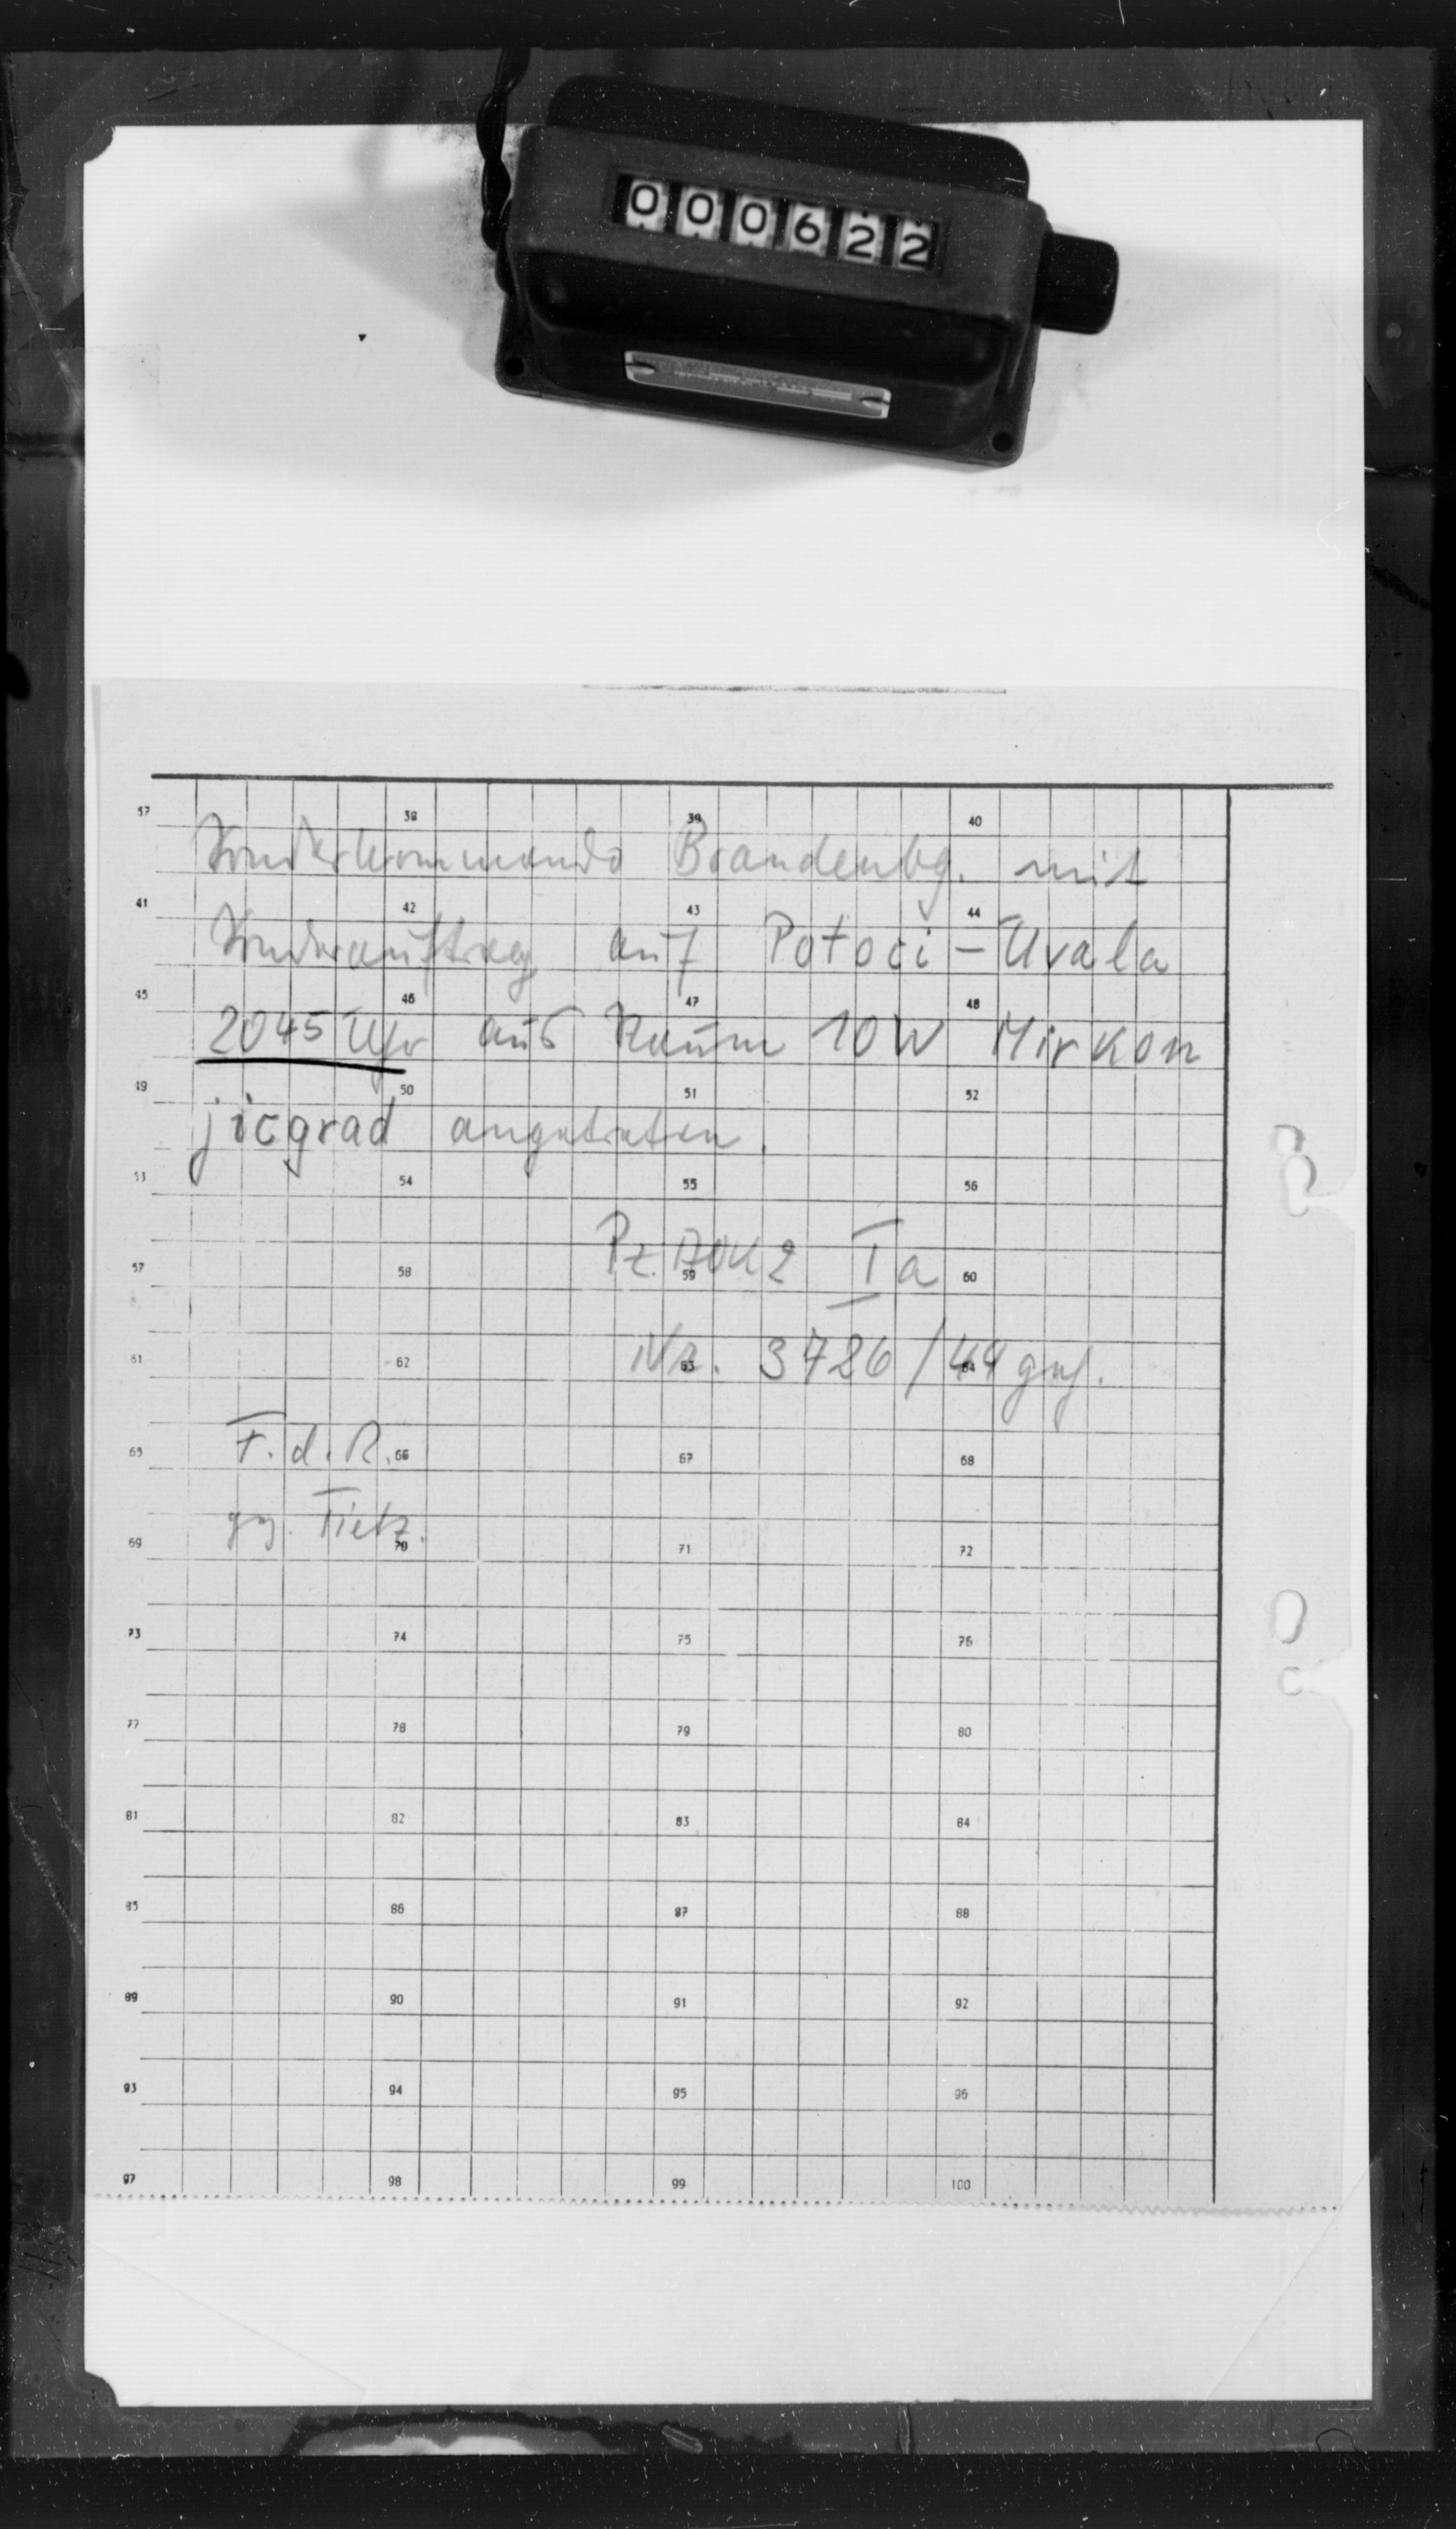 000622
37 38 39 40
Sonderkommando Brandenbg. mit
41 42 43 44
Sonderauftrag auf Potoci - Uvala
45 46 47 48
2045 Uhr aus Raum 10 W Mirkon
49 50 51 52
jicgrad angetreten.
53 54 55 56
Pz. AOK 2 Ia
57 58 59 60
Nr. 3726/44 geh.
61 62 63 64
F. d. R.
65 66 67 68
gez. Tietz.
69 70 71 72
73 74 75 76
77 78 79 80
81 82 83 84
85 86 87 88
89 90 91 92
93 94 95 96
97 98 99 100